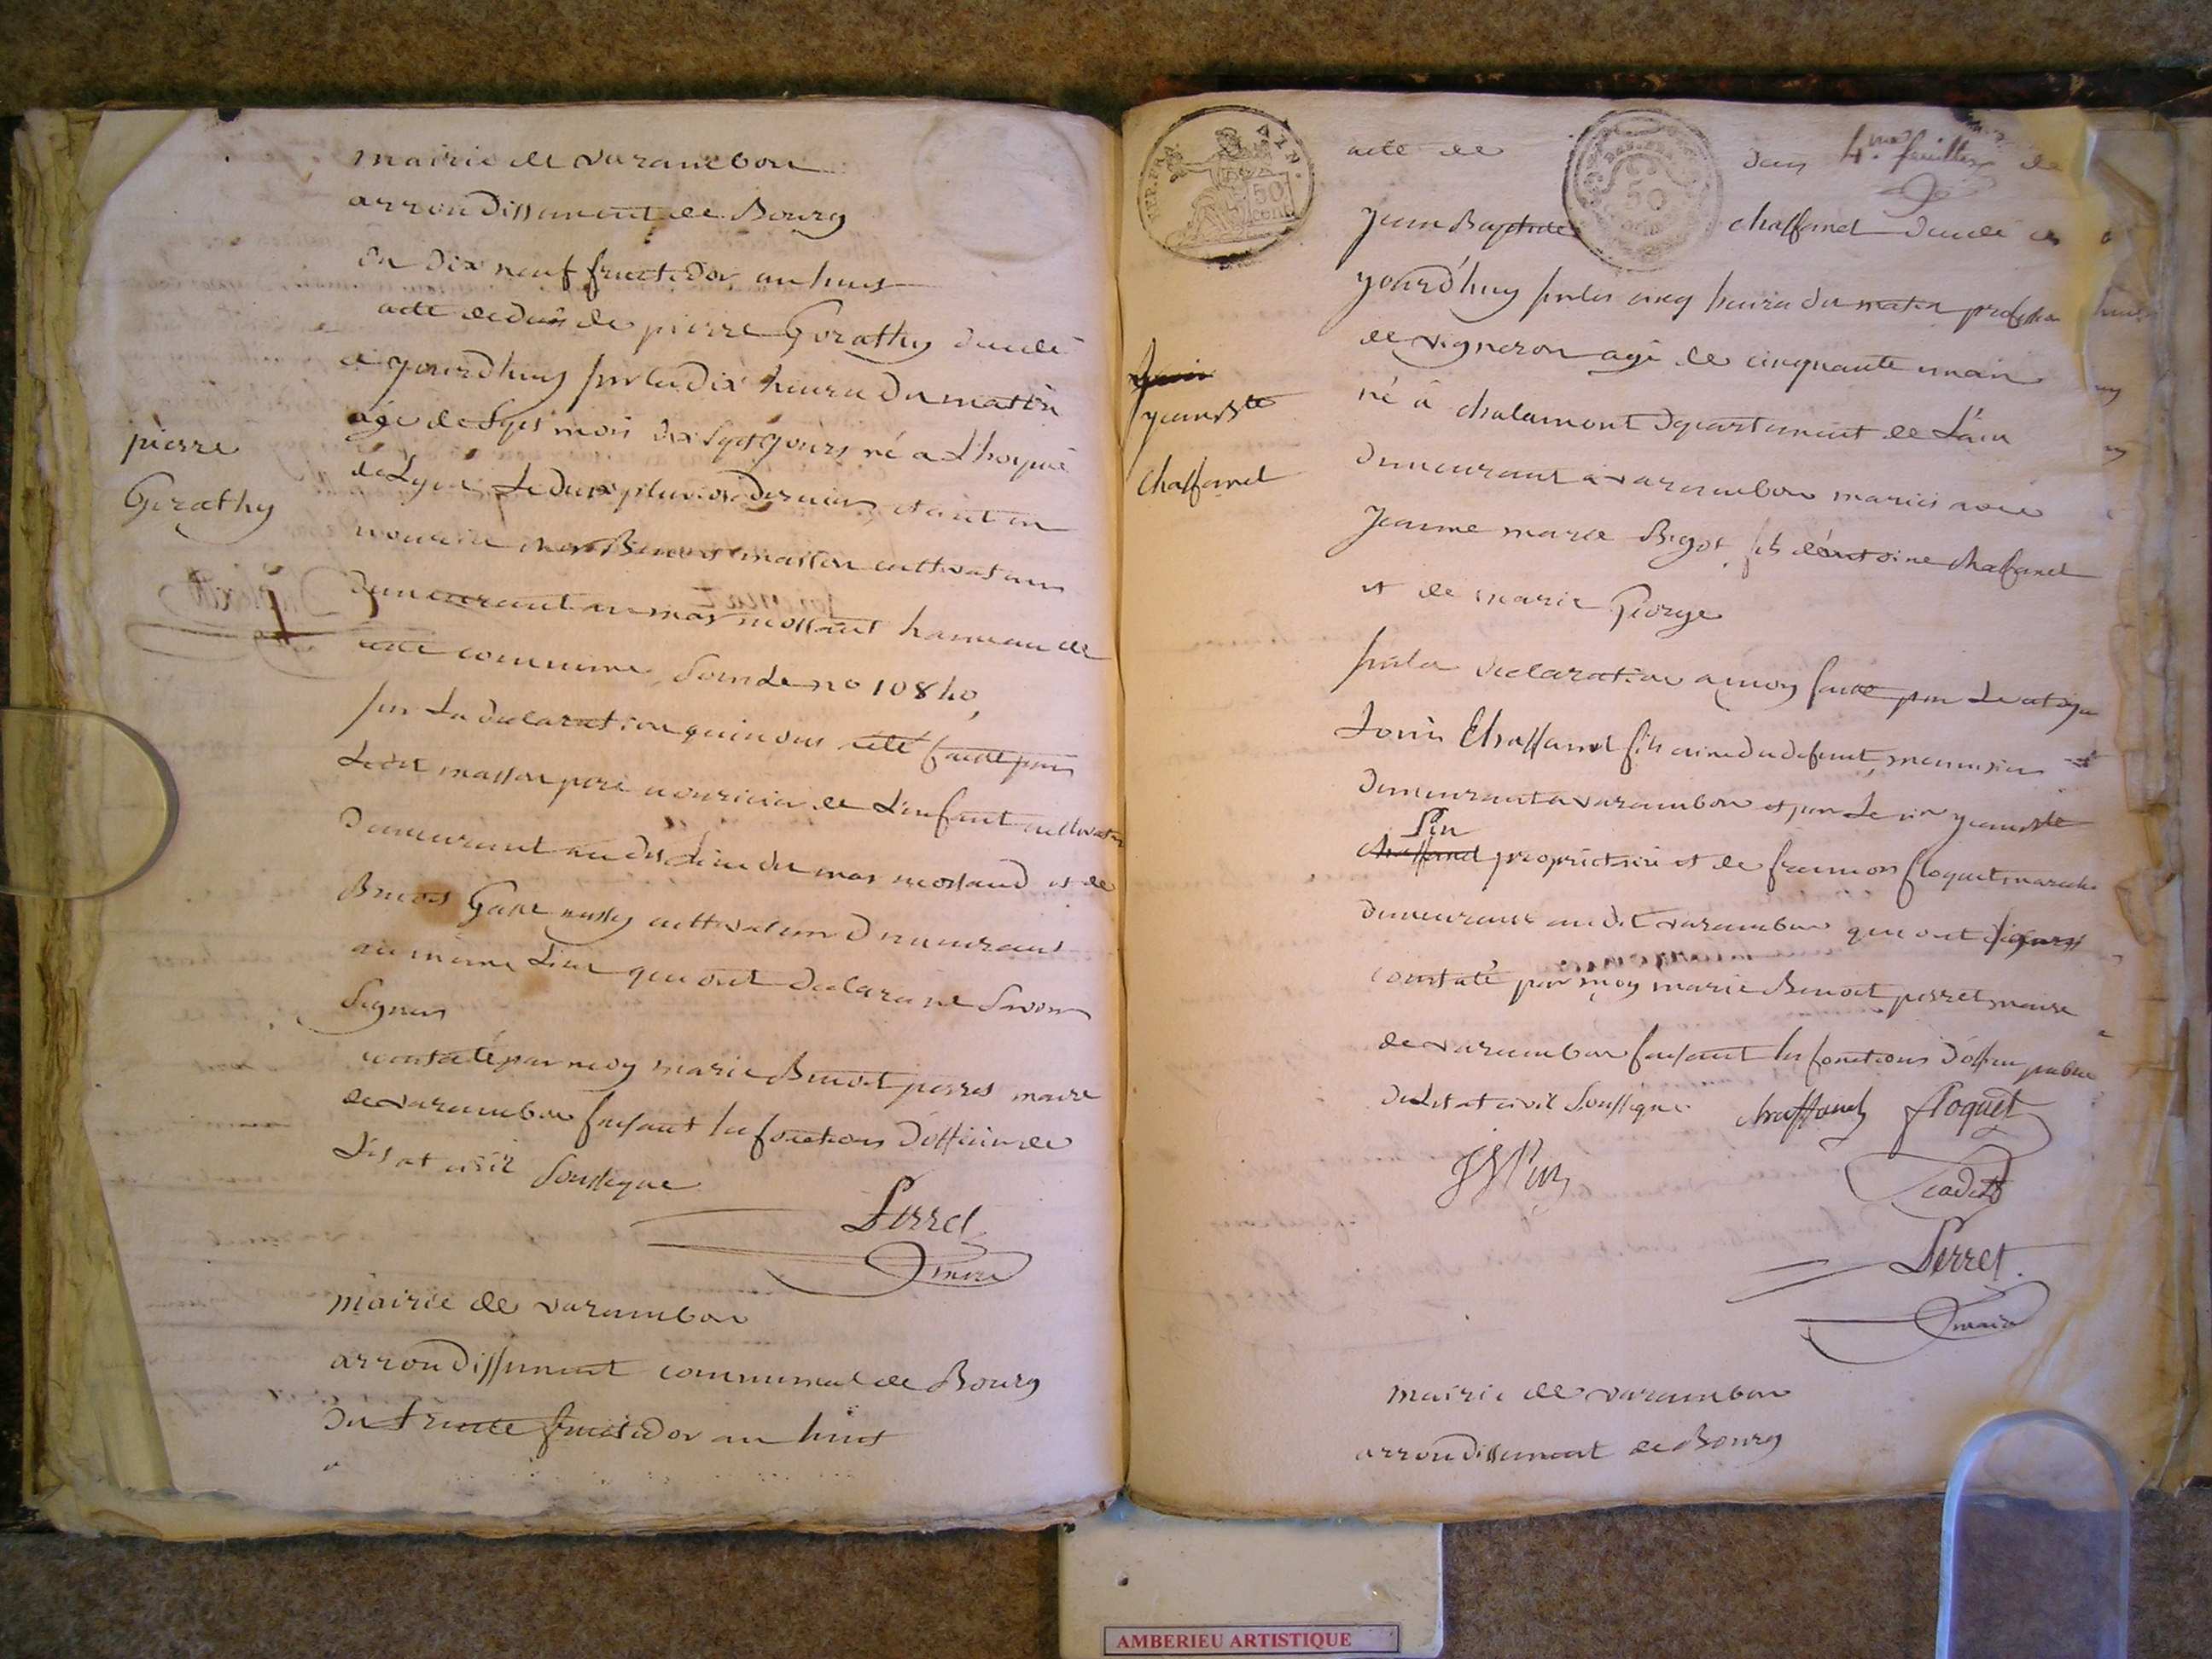 mairie de varambon
arrondissement de Bourg
du dix neuf fructidor an huit
acte de deces de pierre Gorathy decedé
a yourd'huy sur les dix heures du matin
agé de sept mois dix sept yours né a L'hopital
de Lyon Le pluviose dernier, etant en
Benoit masson cultivateur
demeurant au mas mottant hameau de
cette commune, sous Le no 10840,
sur La declaration qui nous a eté faitte par
Ledit masson pere nouricier de L'enfant cultivateur
demeurant au dit Lieu du mas mortaud et de
Benoit cultivateur demeurant
au même Lieu qui ont declaré ne savoir
Signer
constaté par moy marie Benoit perret maire
de varambon faisant les fonctions d'officier de
L'etat civil soussigné
Perret
maire
pierre
Gorathy
mairie de varambon
arrondissement communal de Bourg
du trente fructidor an huit
REP. FRA.
50
cent
50
acte de deces 4me feuillet de
Jean Baptiste chaffanel decedé
yourd'huy sur les cinq heures du matin profession
de vigneron agé de cinquante un an
né à chalamont departement de L'ain
demeurant a varambon marié avec
Jeanne marie Bigot fils d'antoine chaffanel
et de marie George
sur la declaration a moy faitte par Le citoyen
Louis Chaffanel fils ainé du defunt, menuisier
demeurant a varambon et par Le cin yean Bte
Pin
chaffanel proprietaire et de francois floquet marechal
demeurant au dit varambon qui ont signé
constaté par moy marie Benoit perret maire
de varambon faisant les fonctions d'officier public
de L'etat civil soussigné chaffanel floquet
JB Pin
cadet
Perret
maire
yean Bte
chaffanel
mairie de varambon
arrondissement de Bourg
AMBERIEU ARTISTIQUE